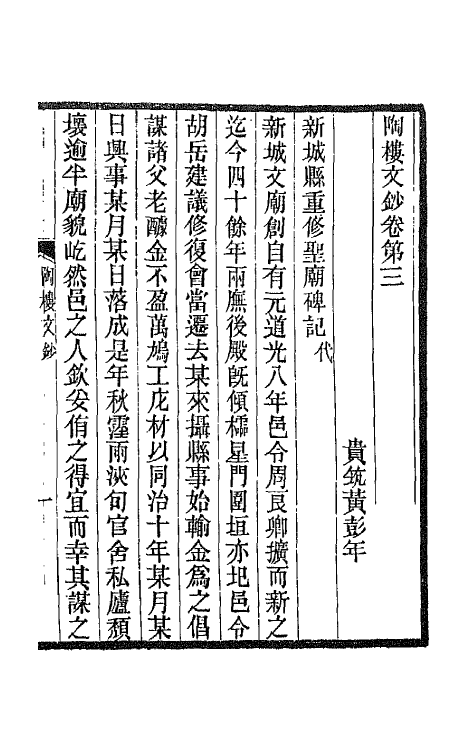 陶樓文鈔卷第三
貴筑黃彭年
新城縣重修聖廟碑記代
新城文廟創自有元道光八年邑令周良卿擴而新之
迄今四十餘年兩廡後殿旣傾櫺星門圍垣亦圮邑令
胡岳建議修復會當遷去某來攝縣事始輸金爲之倡
謀諸父老醵金不盈萬鳩工庀材以同治十年某月某
日興事某月某日落成是年秋霪雨浹旬官舍私廬頹
壞逾半廟貌屹然邑之人欽妥侑之得宜而幸其謀之
陶樓文鈔